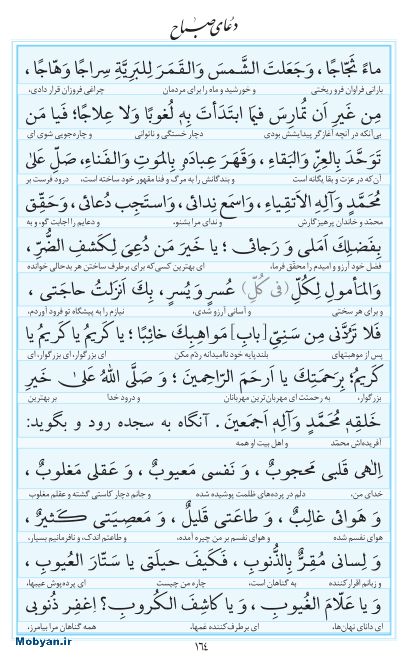 دعای صباح
ماءً ثَجّاجًا ، وَجَعَلتَ الشَّمسَ وَالقَمَرَ لِلبَرِيَّةِ سِراجًا وَهّاجًا ،
بارانی فراوان فرو ریختی و خورشید و ماه را برای مردمان چراغی فروزان قرار دادی،
مِن غَيرِ اَن تُمارِسَ فيمَا ابتَدَأتَ بِهٖ لُغوبًا وَلا عِلاجًا؛ فَيا مَن
بی‌آنکه در آنچه آغازگر پیدایشش بودی دچار خستگی و ناتوانی و چاره‌جویی شوی ای
تَوَحَّدَ بِالعِزِّ وَالبَقاءِ ، وَقَهَرَ عِبادَهٗ بِالمَوتِ وَالفَناءِ، صَلِّ عَلىٰ
آن‌که در عزت و بقا یگانه است و بندگانش را به مرگ و فنا مقهور خود ساخته است، درود فرست بر
مُحَمَّدٍ وَآلِهِ الاَتقِياءِ، وَاسمَع نِدائى، وَاستَجِب دُعائى، وَحَقِّق
محمّد و خاندان پرهیزگارش و ندای مرا بشنو، و دعایم را اجابت کن، و به
بِفَضلِكَ اَمَلى وَ رَجائى ؛ يا خَيرَ مَن دُعِىَ لِكَشفِ الضُّرِّ ،
فضل خود آرزو و امیدم را محقق فرما، ای بهترین کسی‌که برای برطرف ساختن هر بدحالی خوانده
وَالمَأمولِ لِكُلِّ (فى كُلِّ) عُسرٍ وَ يُسرٍ ، بِكَ اَنزَلتُ حاجَتى ،
و برای هر سختی و آسانی آرزو شدی، نیازم را به پیشگاه تو فرود آوردم،
فَلا تَرُدَّنى مِن سَنِىِّ [بابِ] مَواهِبِكَ خائِبًا ؛ يا كَريمُ يا كَريمُ يا
پس از موهبتهای بلندپایه خود ناامیدانه ردّم مکن ای بزرگوار، ای بزرگوار، ای
كَريمُ؛ بِرَحمَتِكَ يا اَرحَمَ الرّاحِمينَ ؛ وَ صَلَّى اللهُ عَلىٰ خَيرِ
بزرگوار، به رحمتت ای مهربان‌ترین مهربانان و درود خدا بر بهترین
خَلقِهٖ مُحَمَّدٍ وَآلِهٖ اَجمَعينَ . آنگاه به سجده رود و بگوید:
آفریده‌اش محمّد و اهل بیت او همه
اِلٰهى قَلبى مَحجوبٌ ، وَ نَفسى مَعيوبٌ ، وَ عَقلى مَغلوبٌ ،
خدای من، دلم در پرده‌های ظلمت پوشیده شده و جانم دچار کاستی گشته و عقلم مغلوب
وَ هَوائى غالِبٌ ، وَ طاعَتى قَليلٌ ، وَ مَعصِيَتى كَثيرٌ ،
هوای نفسم شده و هوای نفسم بر من چیره آمده، و طاعتم اندک، و نافرمانیم بسیار،
وَ لِسانى مُقِرٌّ بِالذُّنوبِ ، فَكَيفَ حيلَتى يا سَتّارَ العُيوبِ ،
و زبانم اقرار کننده به گناهان است، چاره من چیست ای پرده‌پوش عیبها،
وَ يا عَلّامَ الغُيوبِ ، وَ يا كاشِفَ الكُروبِ؟ اِغفِر ذُنوبى
ای دانای نهان‌ها، ای برطرف‌کننده غمها، همه گناهان مرا بیامرز،
١٦٤
Mobyan.ir